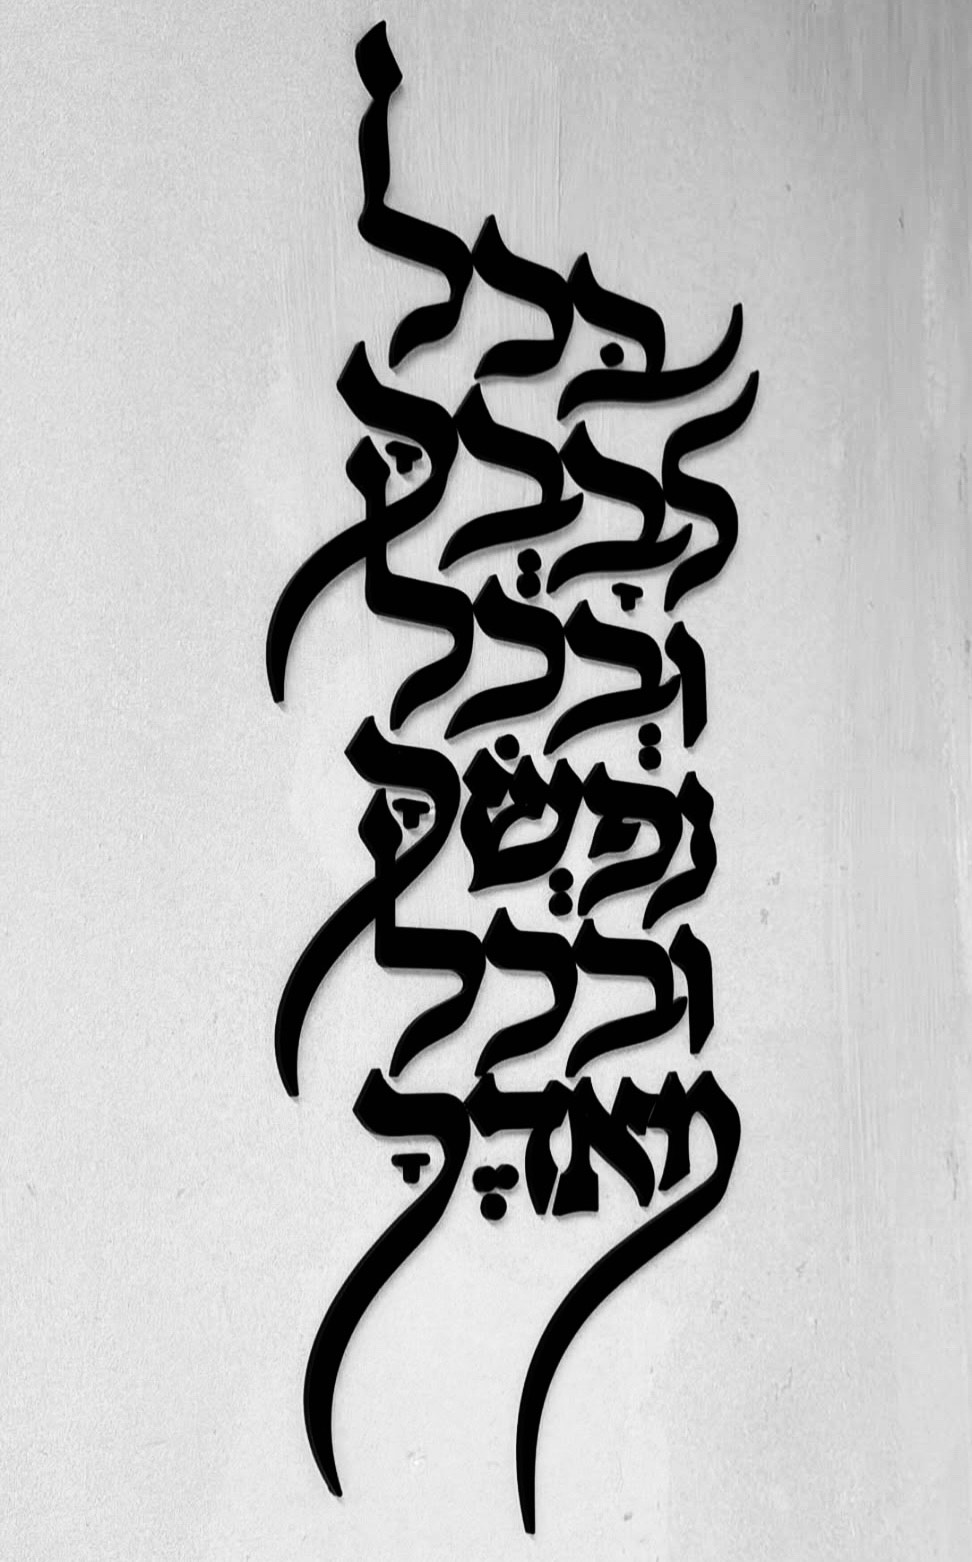 בּכל
לבָבְךָ
ובְכל
נפשְׂךָ
ובכל
מאדֶךָ